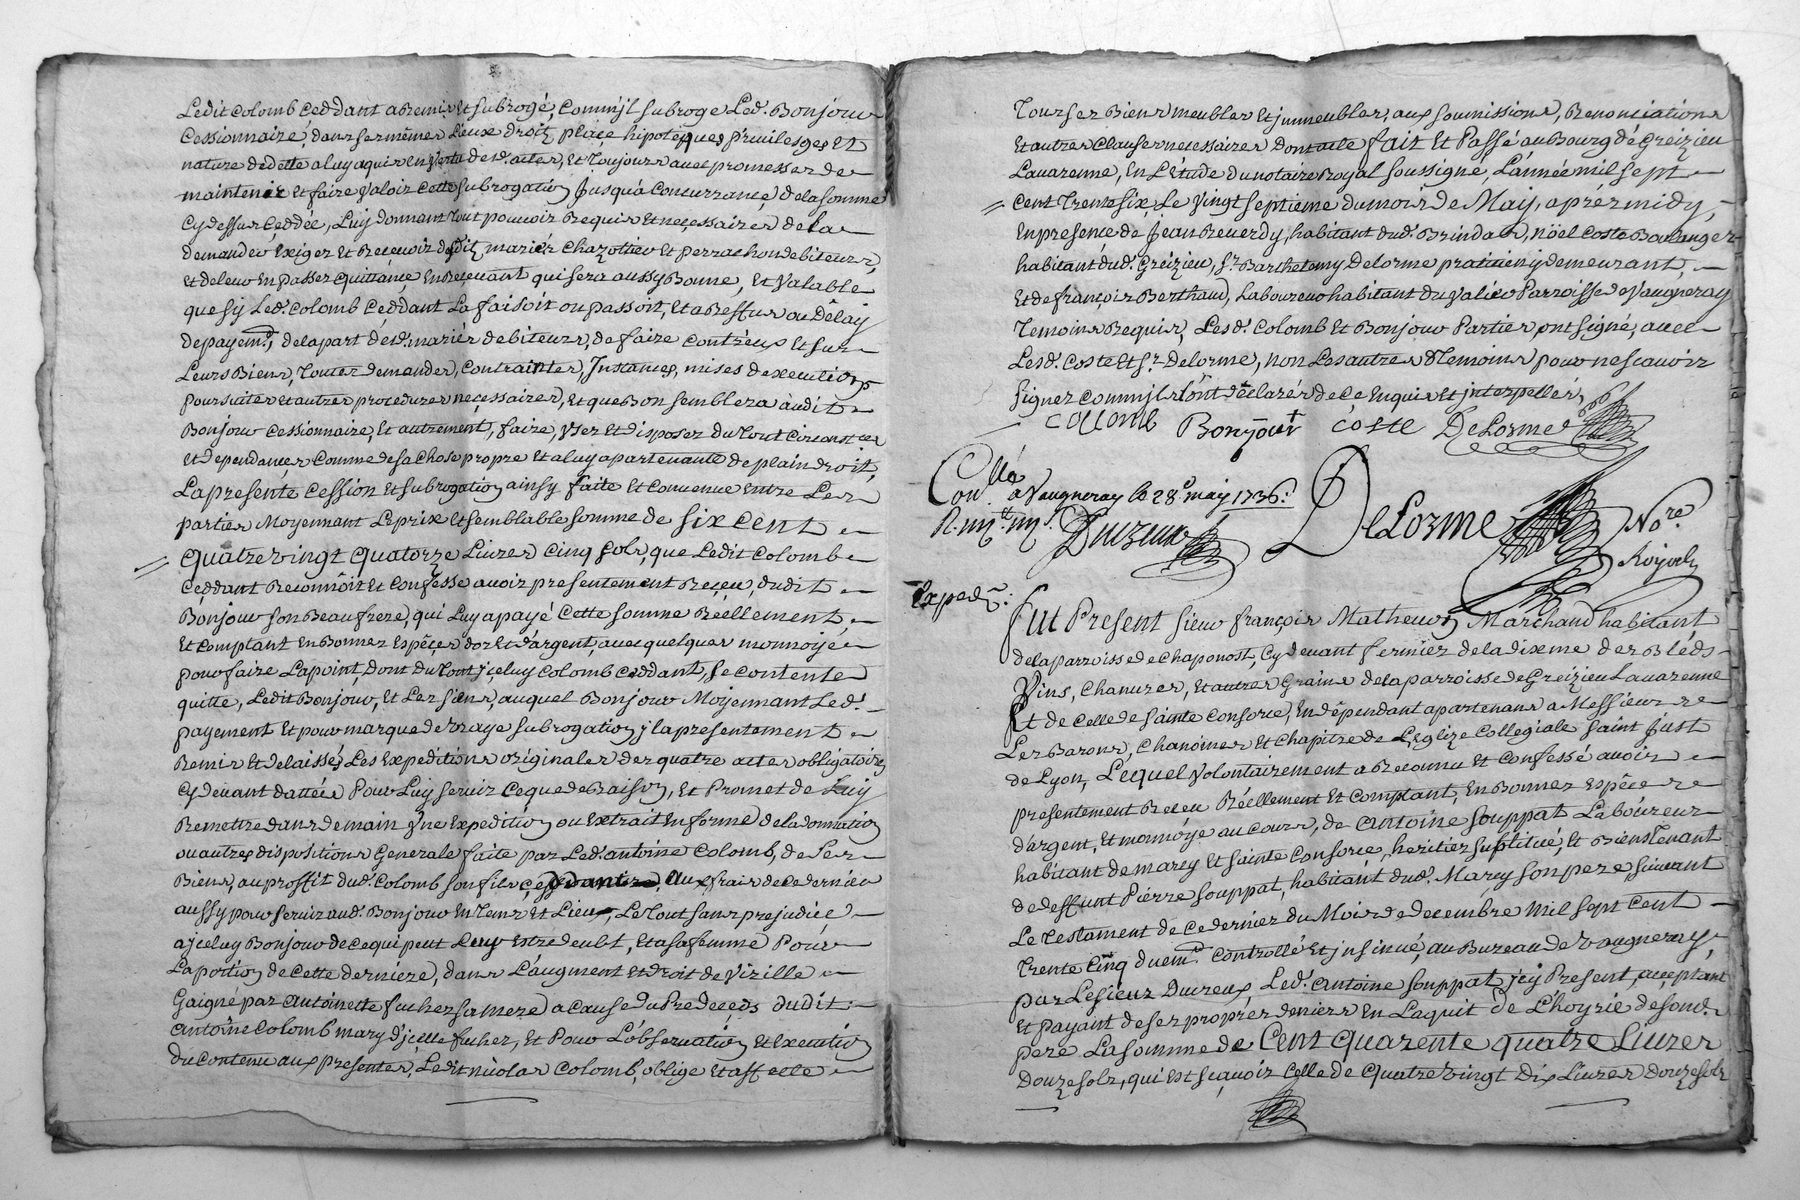 Ledit Colomb Ceddant a Remis Et subrogé, Comm'jl subroge Led. Bonjour
Cessionnaire, dans ses mêmes Lieux droitz, place, hipoteques Privileges Et
nature de dette a luy aquis En Vertu desd. actes, Et Toujours avec promesses de
maintenir Et faire valoir Cette subrogation Jusqu'a Concurrance, de la somme
Cy dessus Ceddée, Luy donnant tout pouvoir Requis Et necessaires de la
demander Exiger Et Recevoir desditz mariés Chazottier Et perrachon debiteurs,
Et de leur En passer Quittance, En Recevant qui sera aussy Bonne, Et Valable
que sy Led. Colomb Ceddant La faisoit ou passoit, Et a Reffus ou Délay
de payemt, de la part desd. mariés debiteurs, de faire Contr'eux Et sur
Leurs Biens, Toutes demandes, Contraintes, Instances, mises d'executions
poursuites et autres procedures necessaires, Et que Bon semblera audit
Bonjour Cessionnaire, Et autrement, faire, user Et disposer du tout Circonstances
Et dependances Comme de sa Chose propre Et a luy apartenante de plain droit,
La presente Cession Et subrogation ainsy faite Et Convenue Entre Les
parties Moyennant Le prix Et semblable somme de six Cent
quatre vingt quatorze Livres Cinq sols, que Ledit Colomb
Ceddant Reconnoit Et Confesse avoir presentement Receu, dudit
Bonjour son Beaufrere, qui Luy a payé Cette somme Réellement,
Et Comptant En Bonnes Espéces d'or Et d'argent, avec quelques monnoyes
pour faire La point, Dont du tout jceluy Colomb Ceddant, se Contente
quitte, Ledit Bonjour, Et Les siens, auquel Bonjour Moyennant Led.
payement Et pour marque de vraye subrogation jl a presentement
Remis Et delaissé, Les Expeditions originales des quatre actes obligatoires
Cy devant dattées Pour Luy servir Ce que de Raison, Et Promet de Luy
Remettre dans demain Une Expedition ou Extrait En forme, de la donnation
ou autres dispositions Generale faite par Led. antoine Colomb, de ses
Biens, au proffit dud. Colomb son fils, aux frais de ce dernier
aussy pour servir aud. Bonjour En tems Et Lieu, Le tout sans prejudice
a jceluy Bonjour de ce qui peut Luy Estre deubt, Et a sa femme Pour
La portion de Cette derniere, dans L'augment Et droit de Vizille
Gaigné par Antoinette fucher sa mere, a Cause du Predeceds dudit
Antoine Colomb mary d'jcelle fucher, Et Pour L'observation Et Execution
du Contenu aux presentes, Ledit nicolas Colomb, oblige Et affecte
Tous ses Biens meubles Et jmmeubles, aux soumissions, Renonciations
Et autres Clauses necessaires dont acte fait Et Passé au Bourg de Greizieu
Lavarenne, En L'étude du notaire Royal soussigné, L'année mil sept
Cent Trente six, Le Vingt septieme du mois de May, aprés midy,
En presence de Jean Reverdy, habitant dud. Brindas, Nöel Coste Boulanger
habitant dud. Greizieu, Sr. Barthelemy Delorme praticien y demeurant,
Et de françois Berthaud, Laboureur habitant du Valier Parroisse de Vaugneray
Temoins Requis, Lesd. Colomb Et Bonjour Parties ont signé, avec
Lesd. Coste Et Sr. Delorme, non Les autres Temoins pour ne scavoir
signer Comm'jls L'ont déclarés de ce Enquis Et jnterpellés
collomb Bonjour coste DeLorme
Conllé a Vaugneray le 28e may 1736.
Ducreux
DeLorme Nore.
Royal
Expedn:
Fut Present sieur françois Matheuon Marchand habitant
de la parroisse de Chaponost, Cy devant fermier de la dixme des Bleds
Vins, Chanvres, Et autres Grains de la parroisse de Greizieu Lavarenne
Et de Celle de sainte Consorce, En dépendant apartenans a Messieurs
Les Barons, Chanoines Et Chapitre de L'Eglize Collegiale saint Just
de Lyon, Lequel volontairement a Reconnu Et Confessé avoir
presentement Receu Réellement Et Comptant, En Bonnes Espéces
d'argent, Et monnoye au Cours, de Antoine Souppat Laboureur
habitant de marcy Et sainte Consorce, heritier substitué, Et Bienstenant
de deffunt Pierre Souppat, habitant dud. Marcy son pere, suivant
Le Testament de Ce dernier du Mois de decembre Mil sept Cent
Trente Cinq duemt Controllé Et jnsinué, au Bureau de Vaugneray,
par Le sieur Ducreux, Led. Antoine Souppat jcy Present, acceptant
Et payant de ses propres deniers En L'aquit de L'hoyrie de sond.
pere La somme de Cent quarente quatre Livres
Douze sols, qui Est scavoir Celle de Quatre vingt Dix Livres douze sols